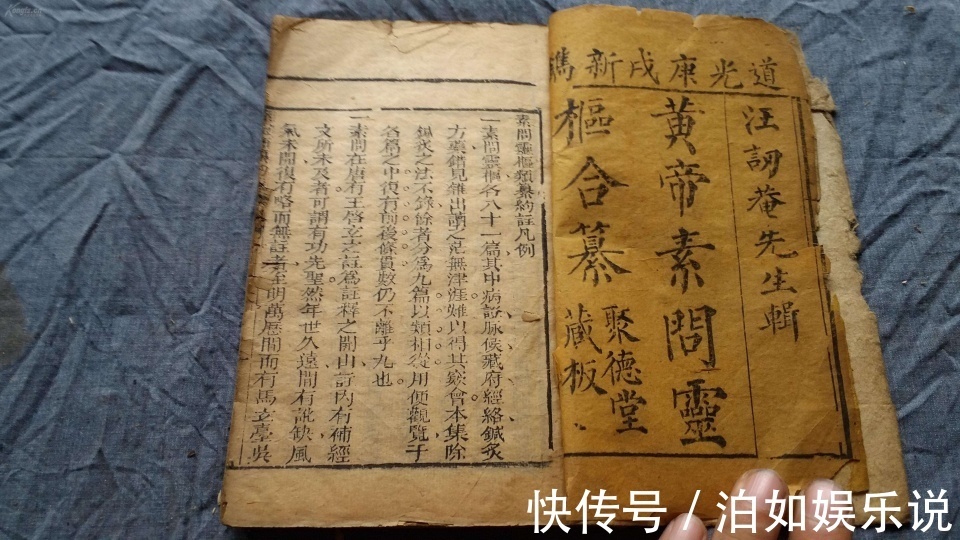 道光庚戌新鐫
汪訒菴先生輯
黃帝素問靈
樞合纂
聚德堂
藏板
素問靈樞類纂約註凡例
一素問靈樞各八十一篇其中病證脉候藏府經絡鍼灸
方藥錯見雜出讀之茫無津涯難以得其竅會本集除
鍼灸之法不錄餘者分爲九篇以類相從用便觀覽于
各篇之中復有前後條貫數仍不離乎九也
一素問在唐有王啓玄之註爲註釋之開山註內有補經
文所未及者可謂有功先聖然年世久遠間有訛缺風
氣未開復有略而無註者至明萬曆間而有馬玄臺吳
快传号 / 泊如娱乐说